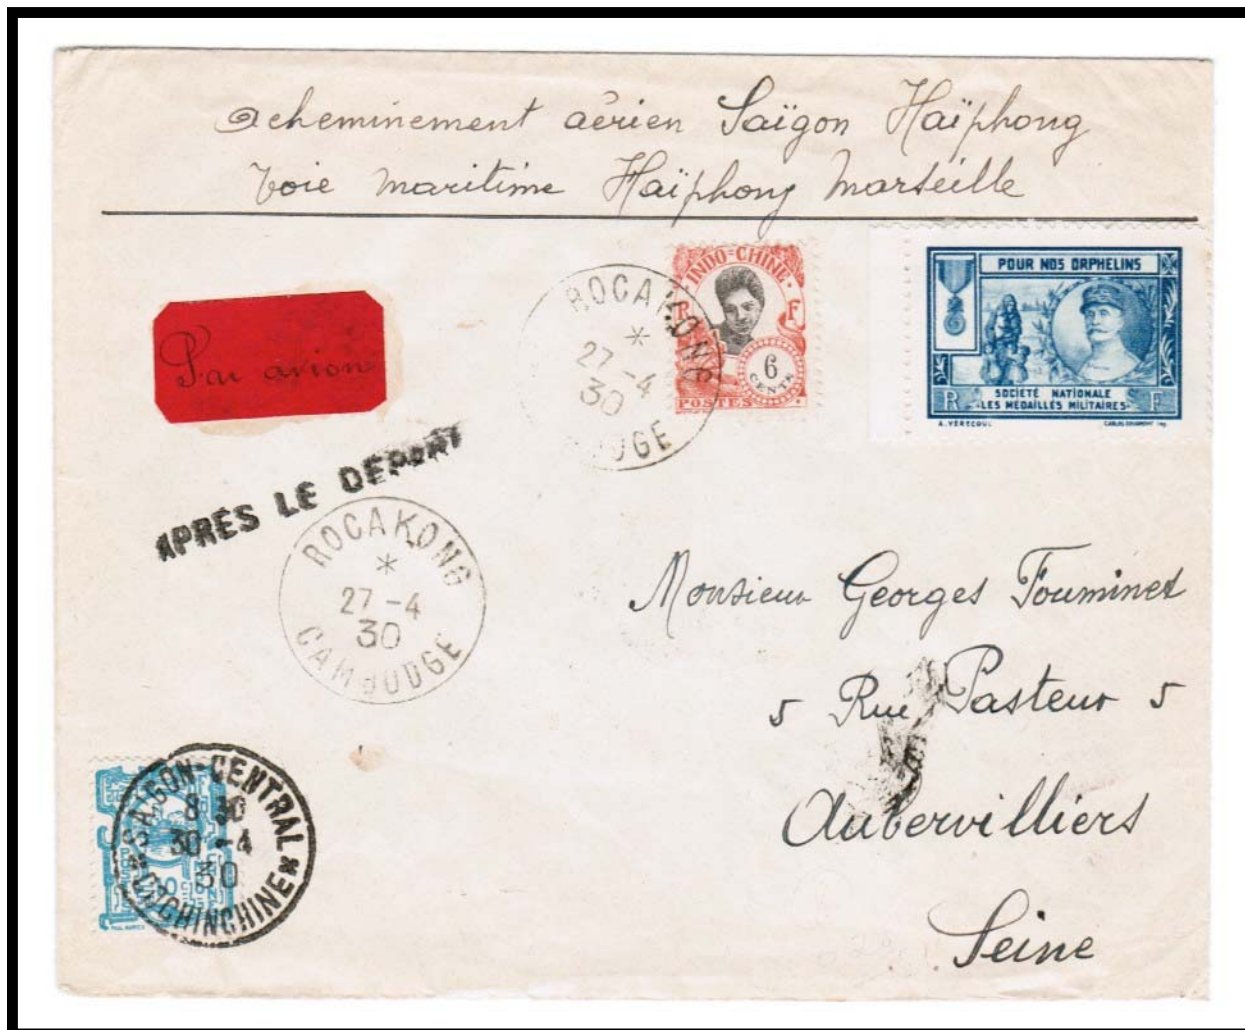 Acheminement aérien Saïgon Haïphong
Voie maritime Haïphong Marseille
Par avion
INDO=CHINE
R F
6
CENTS
POSTES
ROCAKONG
27-4
30
POUR NOS ORPHELINS
R F
SOCIÉTÉ NATIONALE
"LES MÉDAILLÉS MILITAIRES"
A. VERECQUE
APRÈS LE DÉPART
ROCAKONG
27-4
30
CAMBODGE
Monsieur Georges Fouminet
5 Rue Pasteur 5
Aubervilliers
Seine
SAIGON-CENTRAL
8 30
30-4
30
COCHINCHINE